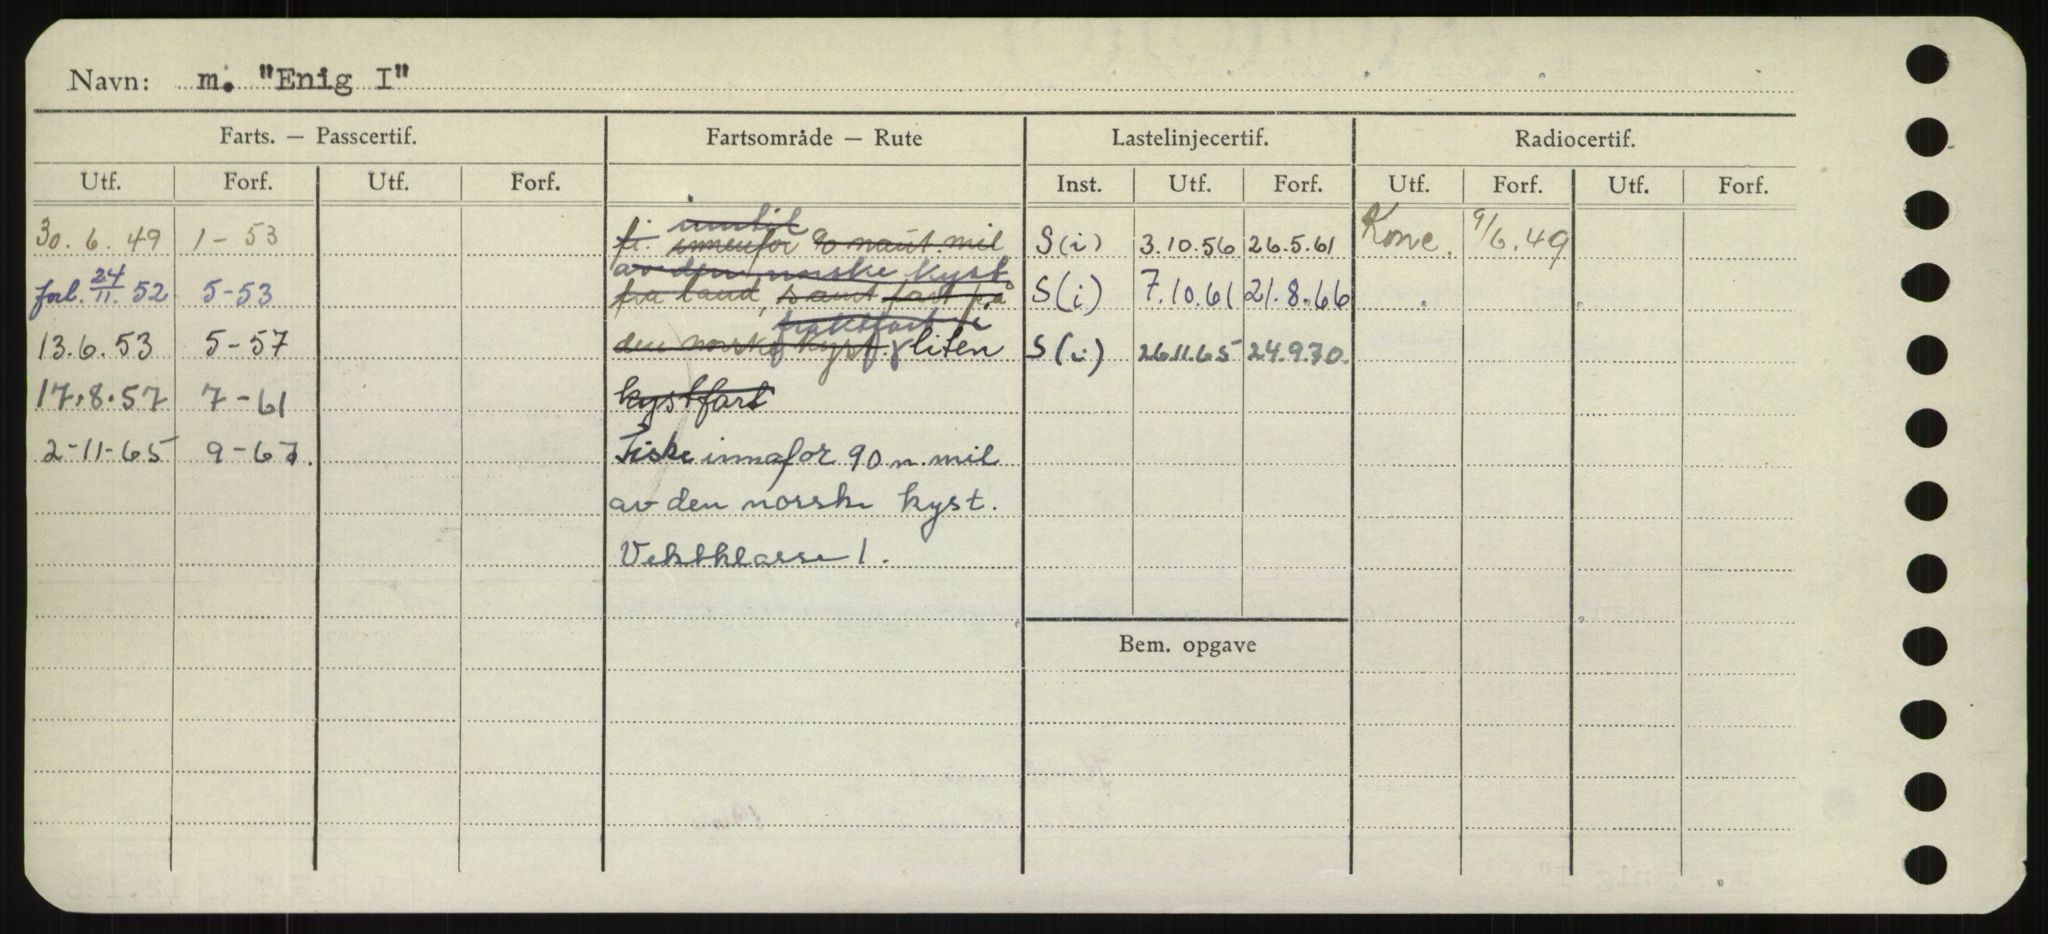 Navn: m. "Enig I"
Farts. — Passcertif. Fartsområde — Rute Lastelinjecertif. Radiocertif.
Utf. Forf. Utf. Forf. Inst. Utf. Forf. Utf. Forf. Utf. Forf.
inntil
30. 6. 49 1 - 53 fi. innenfor 90 naut. mil S(i) 3.10.56 26.5.61 Konc. 9/6.49
av den norske kyst
forl. 24/11. 52 5-53 fra land, samt fart på S(i) 7.10.61 21.8.66
fraktfart i
13.6.53 5-57 den norske kyst liten S(i) 26.11.65 24.9.70.
17.8.57 7-61 kystfart
2-11-65 9-67. Fiske innafor 90 n. mil
av den norske kyst.
Vektklasse 1.
Bem. opgave